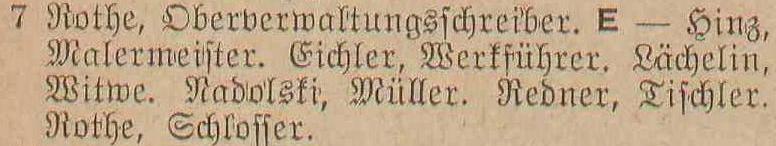 7 Rothe, Oberverwaltungsschreiber. E — Hinz,
Malermeister. Eichler, Werkführer. Lächelin,
Witwe. Nadolski, Müller. Redner, Tischler.
Rothe, Schlosser.